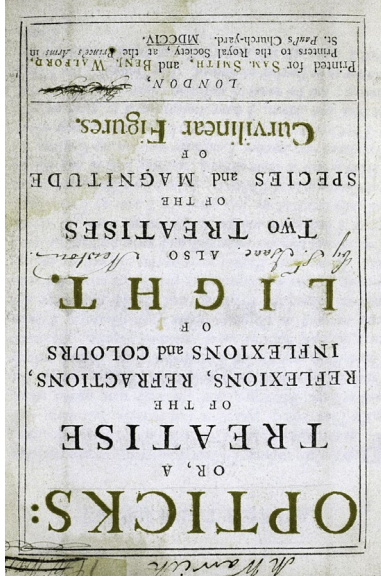 OPTICKS:
OR, A
TREATISE
OF THE
REFLEXIONS, REFRACTIONS,
INFLEXIONS and COLOURS
OF
LIGHT.
ALSO
by Isaac Newton.
Two TREATISES
OF THE
SPECIES and MAGNITUDE
OF
Curvilinear Figures.
LONDON,
Printed for SAM. SMITH, and BENJ. WALFORD,
Printers to the Royal Society, at the Prince's Arms in
St. Paul's Church-yard. MDCCIV.